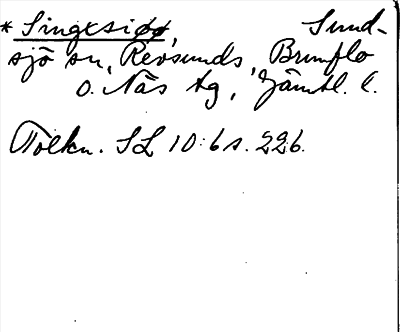 * Singesiøø, Sund-
sjö sn, Revsunds, Brunflo
o. Näs tg, Jämtl. l.
Tolkn. SL 10:6 s. 226.